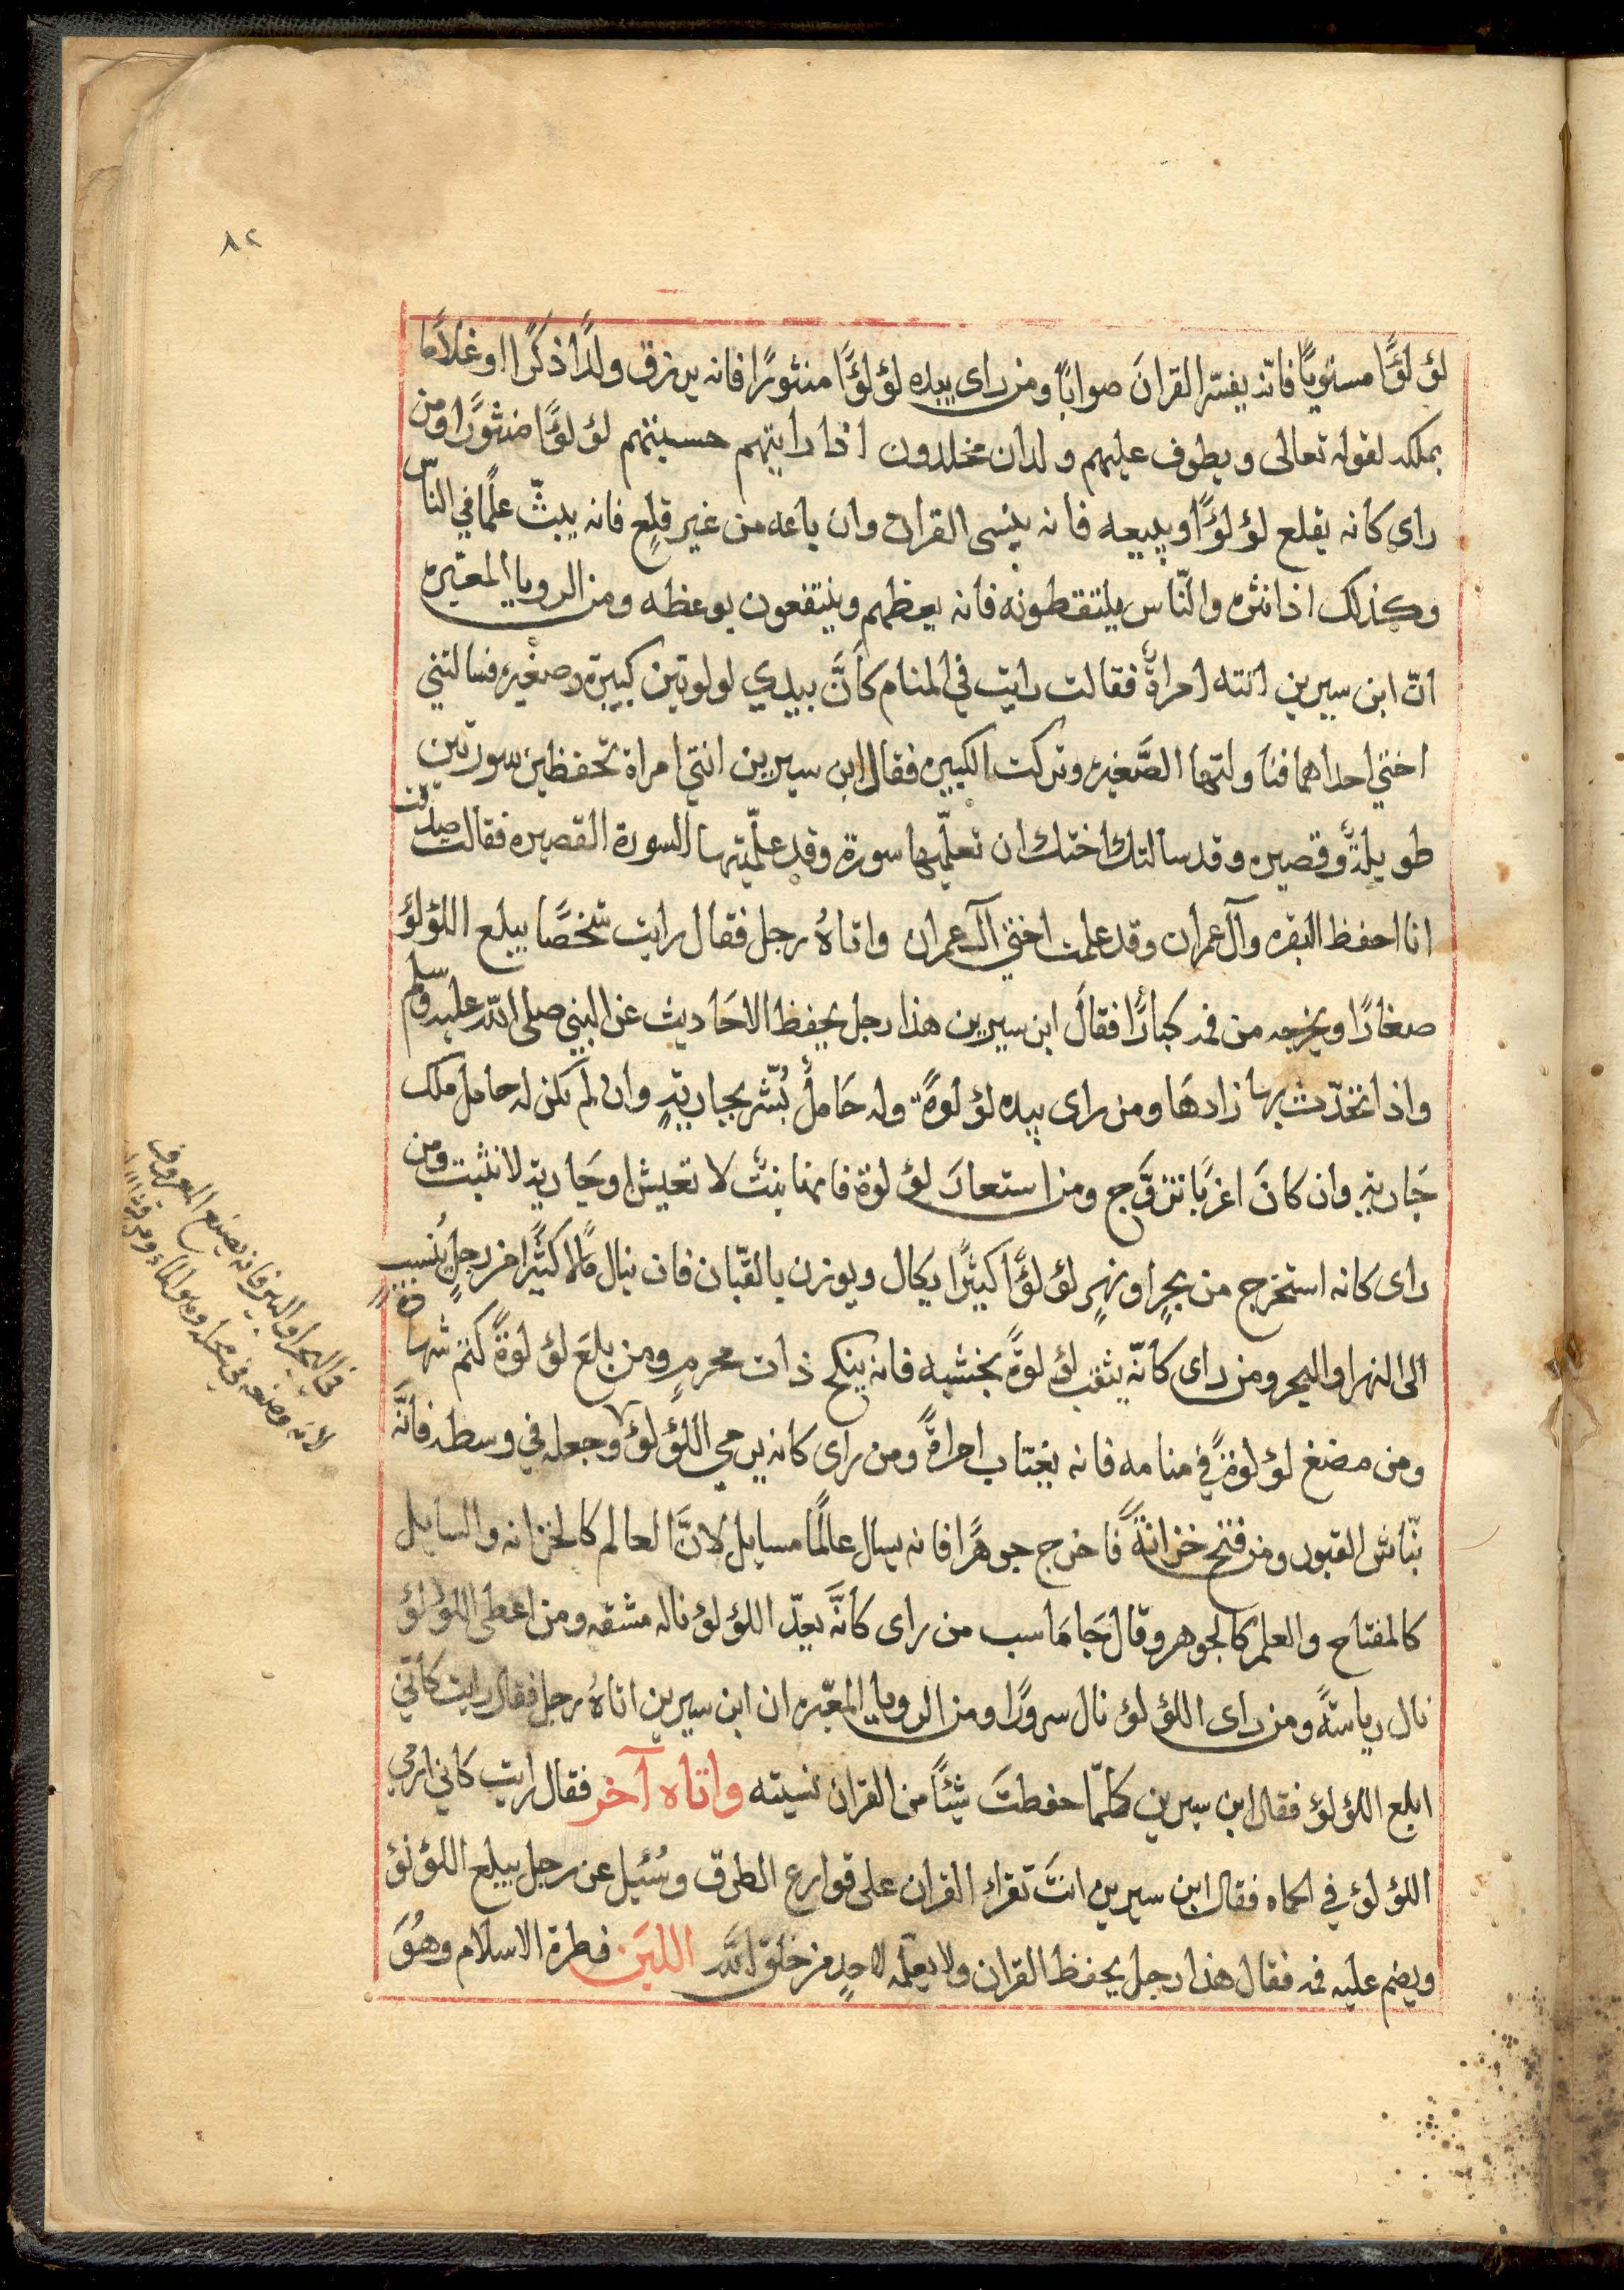 ٨٢
لؤلؤًا مستويًا فانه يفسّر القرانَ صوابًا ومن راى بيده لؤلؤًا منثورًا فانه يرزق ولدًا ذكرًا او غلامًا
يملكه لقوله تعالى ويطوف عليهم ولدان مخلدون اذا رايتهم حسبتهم لؤلؤًا منثورًا ومن
راى كانه يقلع لؤلؤًا ويبيعه فانه ينسى القران وان باعه من غير قلعٍ فانه يبثّ علمًا في الناس
وكذلك اذا نثره والنّاس يلتقطونه فانه يعظهم وينتفعون بوعظه ومن الرويا المعبّره
انّ ابن سيرين اتته امراةٌ فقالت رايت في المنام كأنَّ بيدي لولوتين كبيرة وصغيره فسالتني
اختي احداهما فناولتها الصَّغيره وتركت الكبيره فقال ابن سيرين انتي امراة تحفظين سورتين
طويلةً وقصيره وقد سالتك اختك ان تعلّميها سورة وقد علّمتيها السورة القصيره فقالت صدقت
انا احفظ البقره وآل عمران وقد علمت اختي آل عمران واتاهُ رجل فقال رايت شخصًا يبلع اللؤلؤ
صغارًا ويخرجه من فمه كبارًا فقالَ ابن سيرين هذا رجل يحفظ الاحَاديث عن النبي صلى الله عليه وسلم
واذا تحدّث بها زادهَا ومن راى بيده لؤلوةً وله حَاملٌ بُشّر بجاريةٍ وان لم تكن له حامل ملك
جَاريةٍ وان كانَ اعزبًا تزوَّج ومن استعارَ لؤلوة فانها بنتٌ لا تعيش او جَارية لا تثبت ومن
راى كانه استخرج من بحرٍ او نهرٍ لؤلؤًا كثيرًا يكال ويوزن بالقبّان فان ينال مالًا كثيرًا من رجلٍ يُنسب
الى النهر او البحر ومن راى كانّه يثقب لؤلوةً بخشبه فانه ينكح ذات محرمٍ ومن بلعَ لؤلوةً كتم شهادةً
ومن مضغ لؤلوةً في منامه فانه يغتاب امراةً ومن راى كانه يرمي اللؤلؤ وجعله في وسطه فانّه
نبّاش القبور ومن فتح خزانةً فاخرج جوهرًا فانه يسال عالمًا مسايل لانَّ العالم كالخزانه والسايل
كالمفتاح والعلم كالجوهر وقال جَامَاسب من راى كانَّه يعدّ اللؤلؤ ناله مشقه ومن اعطى اللؤلؤ
نال رياسةً ومن راى اللؤلؤ نال سرورًا ومن الرويا المعبّره ان ابن سيرين اتاهُ رجل فقال رايت كأنّي
ابلع اللؤلؤ فقال ابن سيرين كلمّا حفظتَ شيئًا من القران نسيته واتاه آخر فقال رايت كاني ارمي
اللؤلؤ في الحماه فقال ابن سيرين انتَ تقراء القران على قوارع الطرق وسُئيل عن رجل يبلع اللؤلؤ
ويضم عليه فمه فقال هذا رجل يحفظ القران ولا يعلّمه لاحدٍ من خلق الله اللبَن فطرة الاسلام وهُوَ
في البحر او البير فانه يصنع المعروف
لانه وضعه في محله وهو الماء ومن